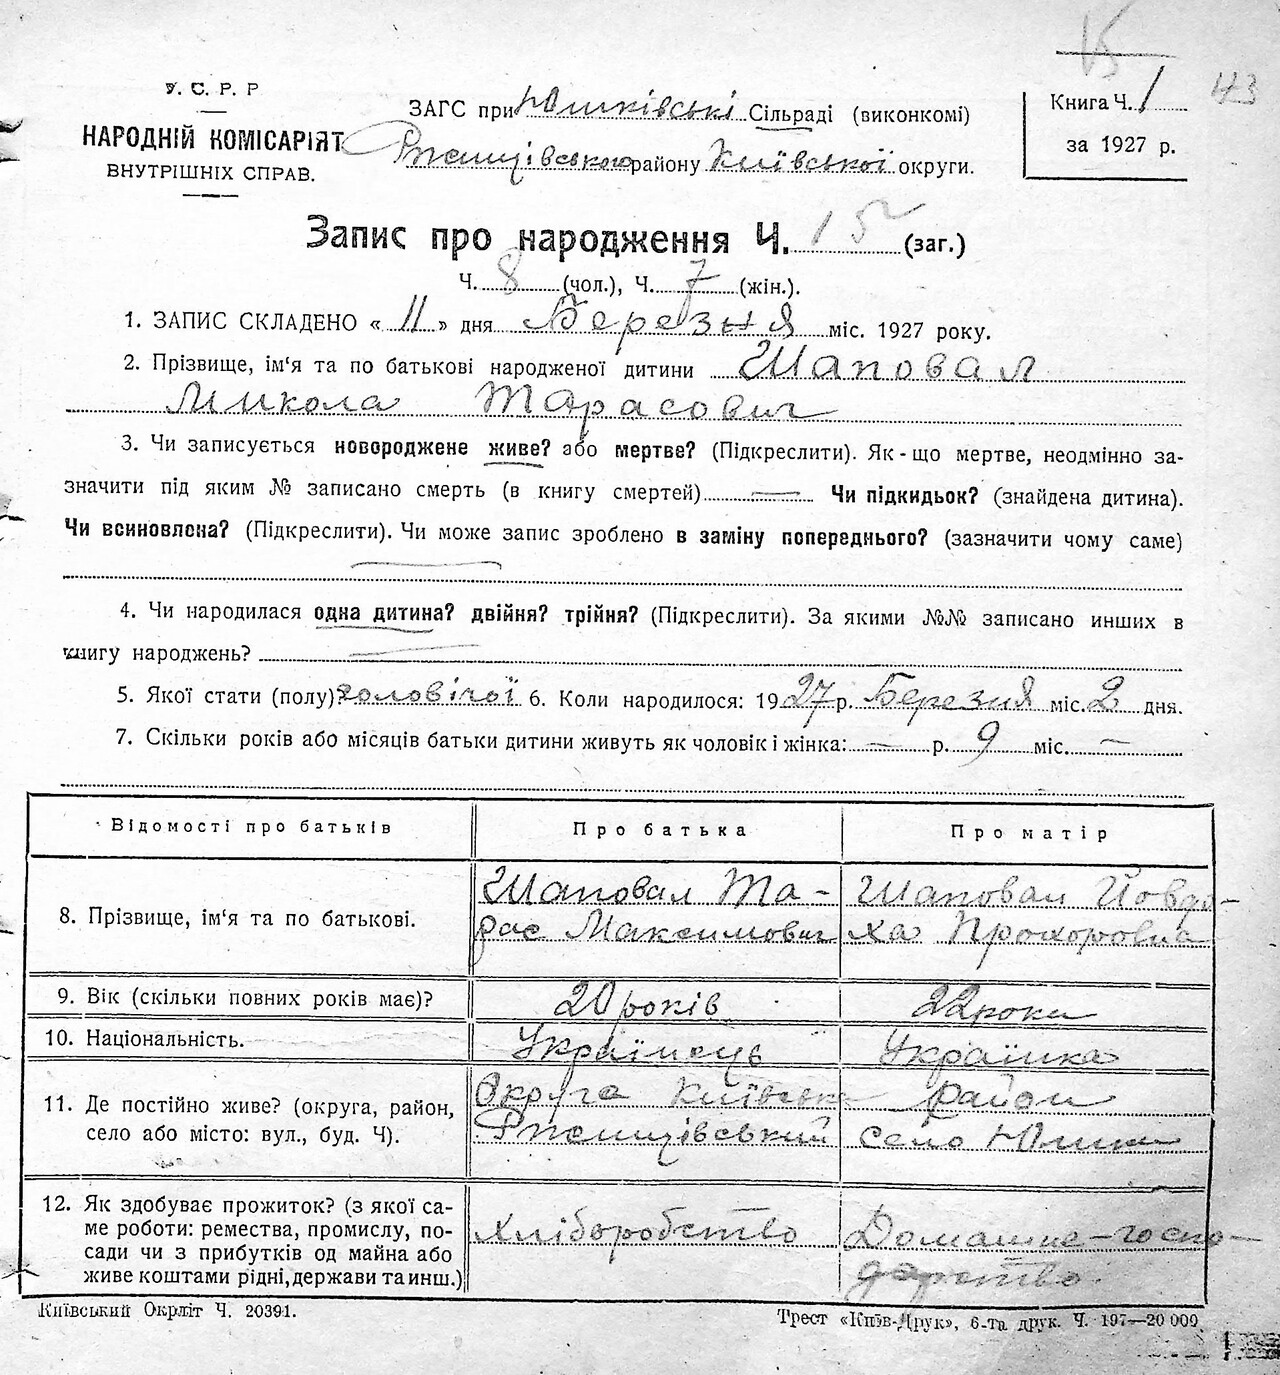 15
43
У. С. Р. Р
НАРОДНІЙ КОМІСАРІЯТ
ВНУТРІШНІХ СПРАВ.
ЗАГС при Юшківські Сільраді (виконкомі)
Ржищівського району Київської округи.
Книга Ч. 1
за 1927 р.
Запис про народження Ч. 15 (заг.)
Ч. 8 (чол.), Ч. 7 (жін.).
1. ЗАПИС СКЛАДЕНО « 11 » дня Березня міс. 1927 року.
2. Прізвище, ім‘я та по батькові народженої дитини Шаповал
Микола Тарасович
3. Чи записується новороджене живе? або мертве? (Підкреслити). Як-що мертве, неодмінно за-
значити під яким № записано смерть (в книгу смертей) — Чи підкидьок? (знайдена дитина).
Чи всиновлена? (Підкреслити). Чи може запис зроблено в заміну попереднього? (зазначити чому саме)
4. Чи народилася одна дитина? двійня? трійня? (Підкреслити). За якими №№ записано инших в
книгу народжень?
5. Якої стати (полу) чоловічої 6. Коли народилося: 1927 р. Березня міс. 2 дня.
7. Скільки років або місяців батьки дитини живуть як чоловік і жінка: — р. 9 міс. —
Відомості про батьків
Про батька
Про матір
8. Прізвище, ім‘я та по батькові.
Шаповал Та-
рас Максимович
Шаповал Йовдо-
ха Прохоровна
9. Вік (скільки повних років має)?
20 років
22 роки
10. Національність.
Українець
Українка
11. Де постійно живе? (округа, район,
село або місто: вул., буд. Ч).
Округа Київська район
Ржищівський село Юшки
12. Як здобуває прожиток? (з якої са-
ме роботи: ремества, промислу, по-
сади чи з прибутків од майна або
живе коштами рідні, держави та инш.)
Хліборобство
Домашне-госпо-
дарство.
Київський Окрліт Ч. 20391.
Трест «Київ-Друк», 6-та друк. Ч. 197—20 000